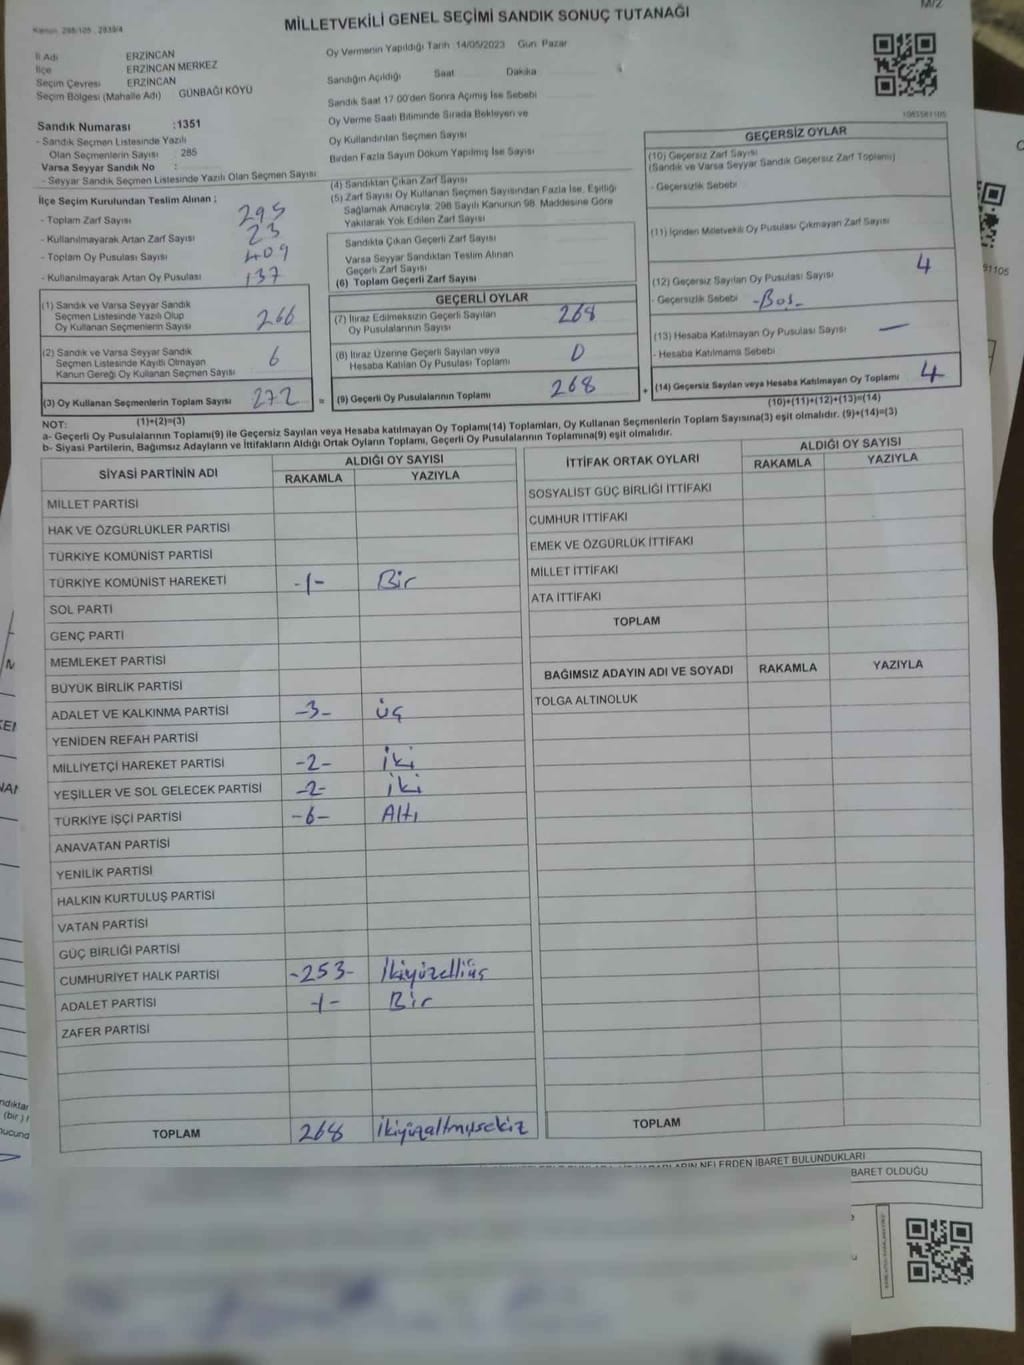 M/2
MİLLETVEKİLİ GENEL SEÇİMİ SANDIK SONUÇ TUTANAĞI
İl Adı ERZİNCAN
İlçe ERZİNCAN MERKEZ
Seçim Çevresi ERZİNCAN
Seçim Bölgesi (Mahalle Adı) GÜNBAĞI KÖYÜ
Sandık Numarası :1351
- Sandık Seçmen Listesinde Yazılı
Olan Seçmenlerin Sayısı : 285
Varsa Seyyar Sandık No :
- Seyyar Sandık Seçmen Listesinde Yazılı Olan Seçmen Sayısı
Oy Vermenin Yapıldığı Tarih 14/05/2023 Gün Pazar
Sandığın Açıldığı Saat Dakika
Sandık Saat 17 00'den Sonra Açımış İse Sebebi
Oy Verme Saati Bitiminde Sırada Bekleyen ve
Oy Kullandırılan Seçmen Sayısı
Birden Fazla Sayım Döküm Yapılmış İse Sayısı
İlçe Seçim Kurulundan Teslim Alınan ;
- Toplam Zarf Sayısı 295
- Kullanılmayarak Artan Zarf Sayısı 23
- Toplam Oy Pusulası Sayısı 409
- Kullanılmayarak Artan Oy Pusulası 137
(1) Sandık ve Varsa Seyyar Sandık
Seçmen Listesinde Yazılı Olup
Oy Kullanan Seçmenlerin Sayısı 266
(2) Sandık ve Varsa Seyyar Sandık
Seçmen Listesinde Kayıtlı Olmayan
Kanun Gereği Oy Kullanan Seçmen Sayısı 6
(3) Oy Kullanan Seçmenlerin Toplam Sayısı 272 =
(1)+(2)=(3)
(4) Sandıktan Çıkan Zarf Sayısı
(5) Zarf Sayısı Oy Kullanan Seçmen Sayısından Fazla İse, Eşitliği
Sağlamak Amacıyla; 298 Sayılı Kanunun 98. Maddesine Göre
Yakılarak Yok Edilen Zarf Sayısı
Sandıkta Çıkan Geçerli Zarf Sayısı
Varsa Seyyar Sandıktan Teslim Alınan
Geçerli Zarf Sayısı
(6) Toplam Geçerli Zarf Sayısı
GEÇERLİ OYLAR
(7) İtiraz Edilmeksizin Geçerli Sayılan
Oy Pusulalarının Sayısı 268
(8) İtiraz Üzerine Geçerli Sayılan veya
Hesaba Katılan Oy Pusulası Toplamı 0
(9) Geçerli Oy Pusulalarının Toplamı 268 +
GEÇERSİZ OYLAR
(10) Geçersiz Zarf Sayısı
(Sandık ve Varsa Seyyar Sandık Geçersiz Zarf Toplamı)
- Geçersizlik Sebebi
(11) İçinden Milletvekili Oy Pusulası Çıkmayan Zarf Sayısı
(12) Geçersiz Sayılan Oy Pusulası Sayısı 4
- Geçersizlik Sebebi -Boş-
(13) Hesaba Katılmayan Oy Pusulası Sayısı —
- Hesaba Katılmama Sebebi
(14) Geçersiz Sayılan veya Hesaba Katılmayan Oy Toplamı 4
(10)+(11)+(12)+(13)=(14)
NOT:
a- Geçerli Oy Pusulalarının Toplamı(9) ile Geçersiz Sayılan veya Hesaba katılmayan Oy Toplamı(14) Toplamları, Oy Kullanan Seçmenlerin Toplam Sayısına(3) eşit olmalıdır. (9)+(14)=(3)
b- Siyasi Partilerin, Bağımsız Adayların ve İttifakların Aldığı Ortak Oyların Toplamı, Geçerli Oy Pusulalarının Toplamına(9) eşit olmalıdır.
SİYASİ PARTİNİN ADI ALDIĞI OY SAYISI
RAKAMLA YAZIYLA
MİLLET PARTİSİ
HAK VE ÖZGÜRLÜKLER PARTİSİ
TÜRKİYE KOMÜNİST PARTİSİ
TÜRKİYE KOMÜNİST HAREKETİ -1- Bir
SOL PARTİ
GENÇ PARTİ
MEMLEKET PARTİSİ
BÜYÜK BİRLİK PARTİSİ
ADALET VE KALKINMA PARTİSİ -3- üç
YENİDEN REFAH PARTİSİ
MİLLİYETÇİ HAREKET PARTİSİ -2- iki
YEŞİLLER VE SOL GELECEK PARTİSİ -2- iki
TÜRKİYE İŞÇİ PARTİSİ -6- Altı
ANAVATAN PARTİSİ
YENİLİK PARTİSİ
HALKIN KURTULUŞ PARTİSİ
VATAN PARTİSİ
GÜÇ BİRLİĞİ PARTİSİ
CUMHURİYET HALK PARTİSİ -253- İkiyüzelliüç
ADALET PARTİSİ -1- Bir
ZAFER PARTİSİ
TOPLAM 268 ikiyüzaltmışsekiz
İTTİFAK ORTAK OYLARI ALDIĞI OY SAYISI
RAKAMLA YAZIYLA
SOSYALİST GÜÇ BİRLİĞİ İTTİFAKI
CUMHUR İTTİFAKI
EMEK VE ÖZGÜRLÜK İTTİFAKI
MİLLET İTTİFAKI
ATA İTTİFAKI
TOPLAM
BAĞIMSIZ ADAYIN ADI VE SOYADI RAKAMLA YAZIYLA
TOLGA ALTINOLUK
TOPLAM
NELERDEN İBARET BULUNDUKLARI
BARET OLDUĞU